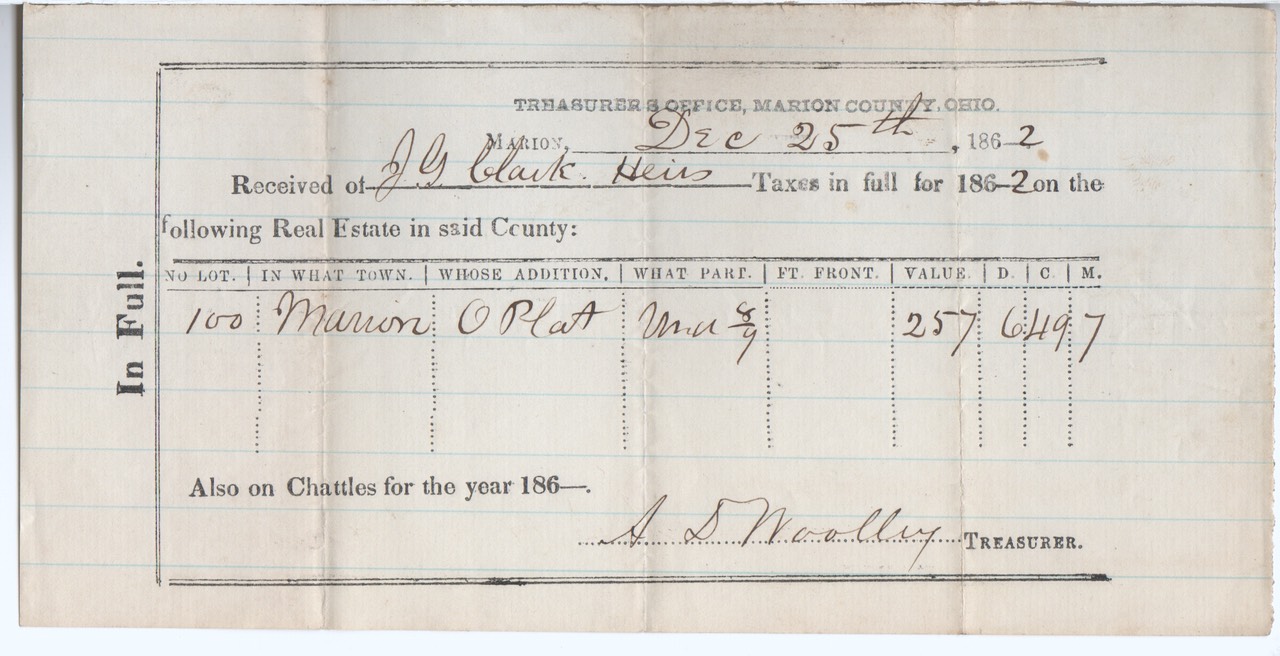 TREASURER'S OFFICE, MARION COUNTY, OHIO.
MARION, Dec 25th, 1862
Received of J G Clark Heirs Taxes in full for 1862 on the
following Real Estate in said County:
In Full.
NO LOT. | IN WHAT TOWN. | WHOSE ADDITION. | WHAT PART. | FT. FRONT. | VALUE. | D. | C. | M.
100 Marion O Plat Und 8/9 257 6 49 7
Also on Chattles for the year 186—.
A D Woolley TREASURER.